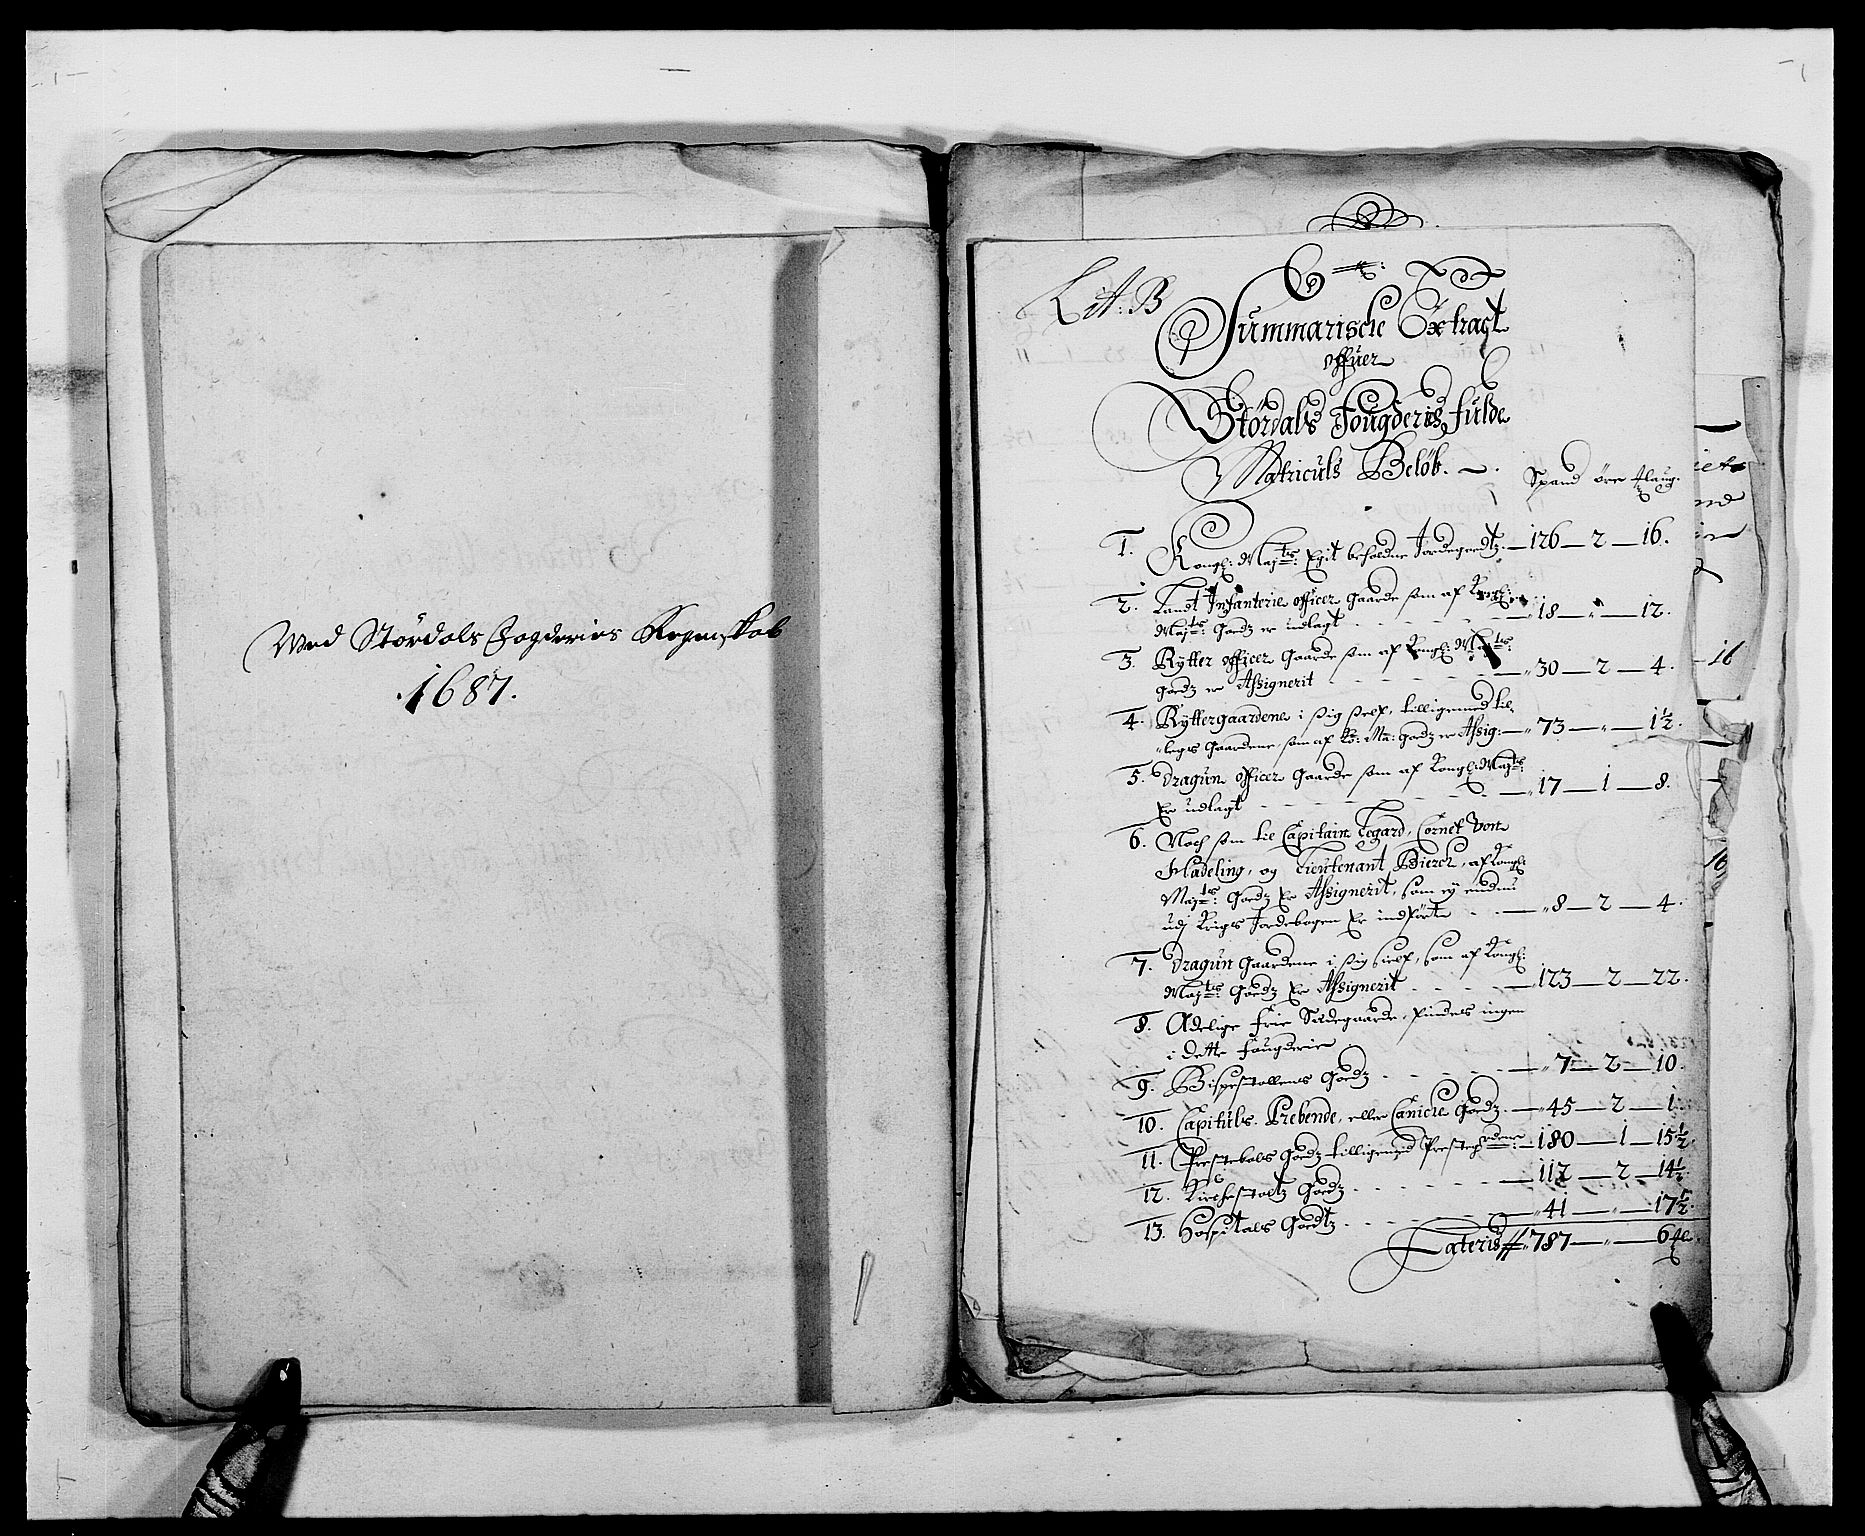 Med Stördals Fogderies Regenskab
1687.
Lit: B
Summarische Extract
offuer
Stördals Fougderis fulde
Matriculs Beløb.
Spand øre Hlaug.
1. Kongl: Maÿts: Egit beholdne Jordegodtz — 126 — 2 — 16.
2. Landt Infanterie officer Gaarde som af Kongl:
Maÿts: Godtz er udlagt — 18 — " — 12.
3. Rÿtter officer Gaarde som af Kongl: Maÿts:
Godtz er Assignerit — 30 — 2 — 4.
4. Rÿttergaardene i sig self, tilligemed til-
legs Gaardene, som af Ko: Ma: Godtz er Assig: — 73 — " — 1½.
5. Dragun officer Gaarde som af Kongl: Maÿts:
Er udlagt — 17 — 1 — 8.
6. Noch som til Capitain Legard, Cornet Von
Hadeling, og Lieutenant Bierch, af Kongl:
Maÿts: Godtz Er Assignerit, som eÿ endnu
udj Krigs Jordebogen Er indførte — 8 — 2 — 4.
7. Dragun Gaardene i sig self, som af Kongl:
Maÿts: Godtz Er Assignerit — 123 — 2 — 22.
8. Adelige frie Sædegaarde, findes ingen
i dette fougderie
9. Bispestollens Godtz — 7 — 2 — 10.
10. Capituls. Præbende, eller Canicke Godtz. — 45 — 2 — 1.
11. Prestebols Godtz tilligemed Presteg — 180 — 1 — 15½
12. Kirchestolz Godtz — 112 — 2 — 14½.
13. Hospitals Godtz — 41 — " — 17½.
Lateris 787 — " — 6